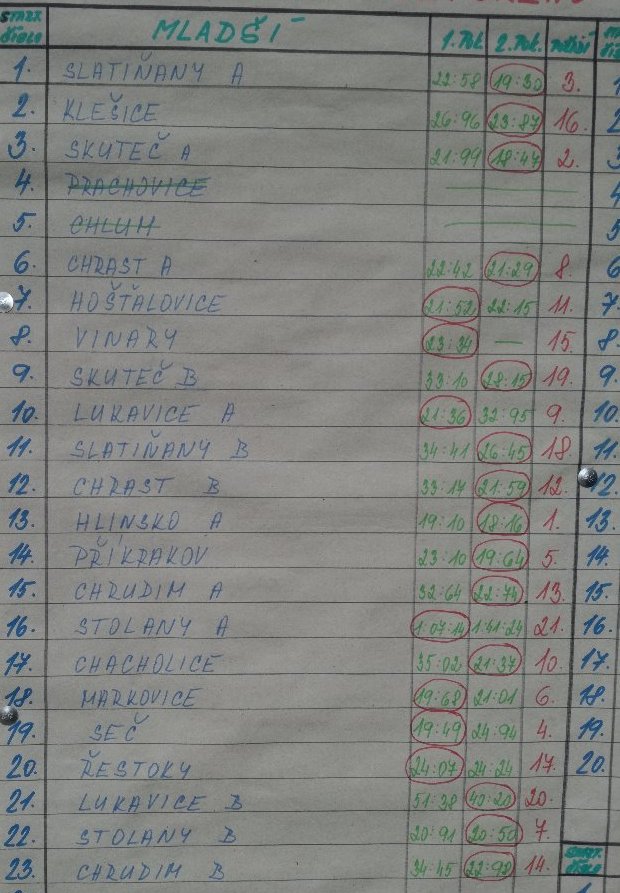 START. ČÍSLO MLADŠÍ 1. POK. 2. POK. POŘADÍ
1. SLATIŇANY A 22:58 19:30 3.
2. KLEŠICE 26:96 23:87 16.
3. SKUTEČ A 21:99 18:47 2.
4. PRACHOVICE
5. CHLUM
6. CHRAST A 22:42 21:29 8.
7. HOŠŤALOVICE 21:52 22:15 11.
8. VINARY 23:34 — 15.
9. SKUTEČ B 33:10 28:15 19.
10. LUKAVICE A 21:36 32:95 9.
11. SLATIŇANY B 34:41 26:45 18.
12. CHRAST B 33:14 21:59 12.
13. HLINSKO A 19:10 18:16 1.
14. PŘÍKRAKOV 23:10 19:64 5.
15. CHRUDIM A 32:64 22:74 13.
16. STOLANY A 1:07:14 1:41:24 21.
17. CHACHOLICE 35:02 21:37 10.
18. MARKOVICE 19:68 21:01 6.
19. SEČ 19:49 24:94 4.
20. ŘESTOKY 24:07 24:24 17.
21. LUKAVICE B 51:38 40:20 20.
22. STOLANY B 20:91 20:50 7.
23. CHRUDIM B 34:45 22:92 14.
6
7.
8.
9.
10.
11.
12.
13.
14.
15.
16.
17.
18.
19.
20.
START. ČÍSLO